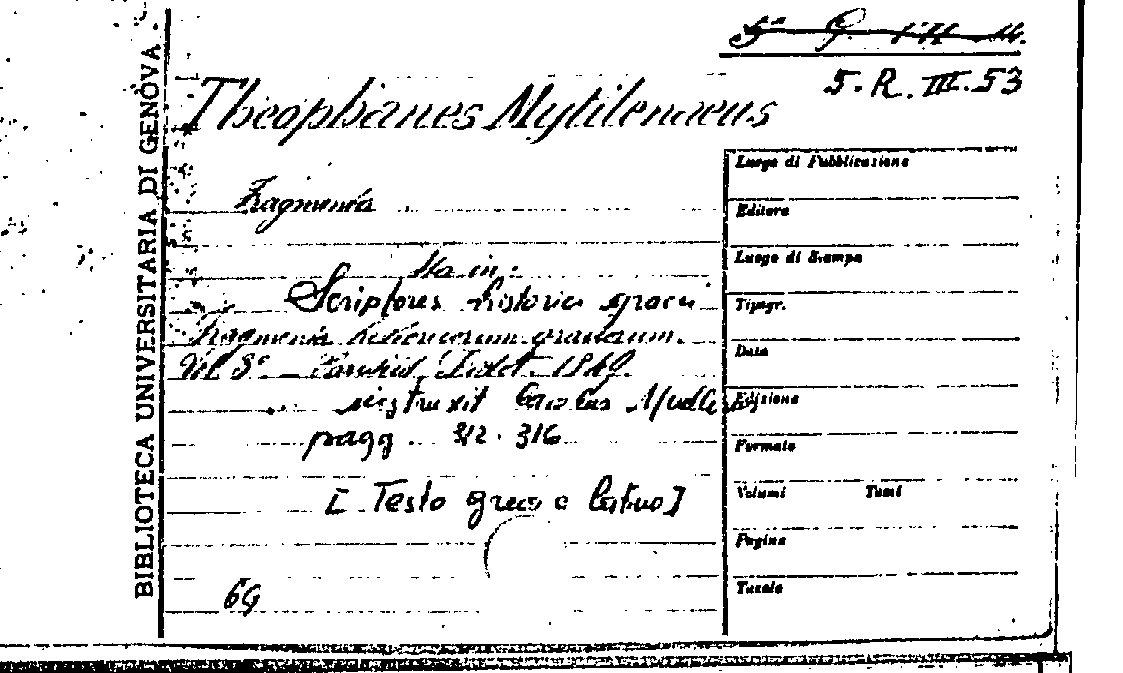 BIBLIOTECA UNIVERSITARIA DI GENOVA
5.R.III.53
Theophanes Mytilenaeus
Fragmenta
Sta in:
Scriptores historici graeci
Fragmenta historicorum graecorum.
Vol. 3° - Parisiis, Didot. 1849.
instruxit Carolus Mullerus
pagg. 312-316
[Testo greco e latino]
69
Luogo di Pubblicazione
Editore
Luogo di Stampa
Tipogr.
Data
Edizione
Formato
Volumi Tomi
Pagine
Tavole